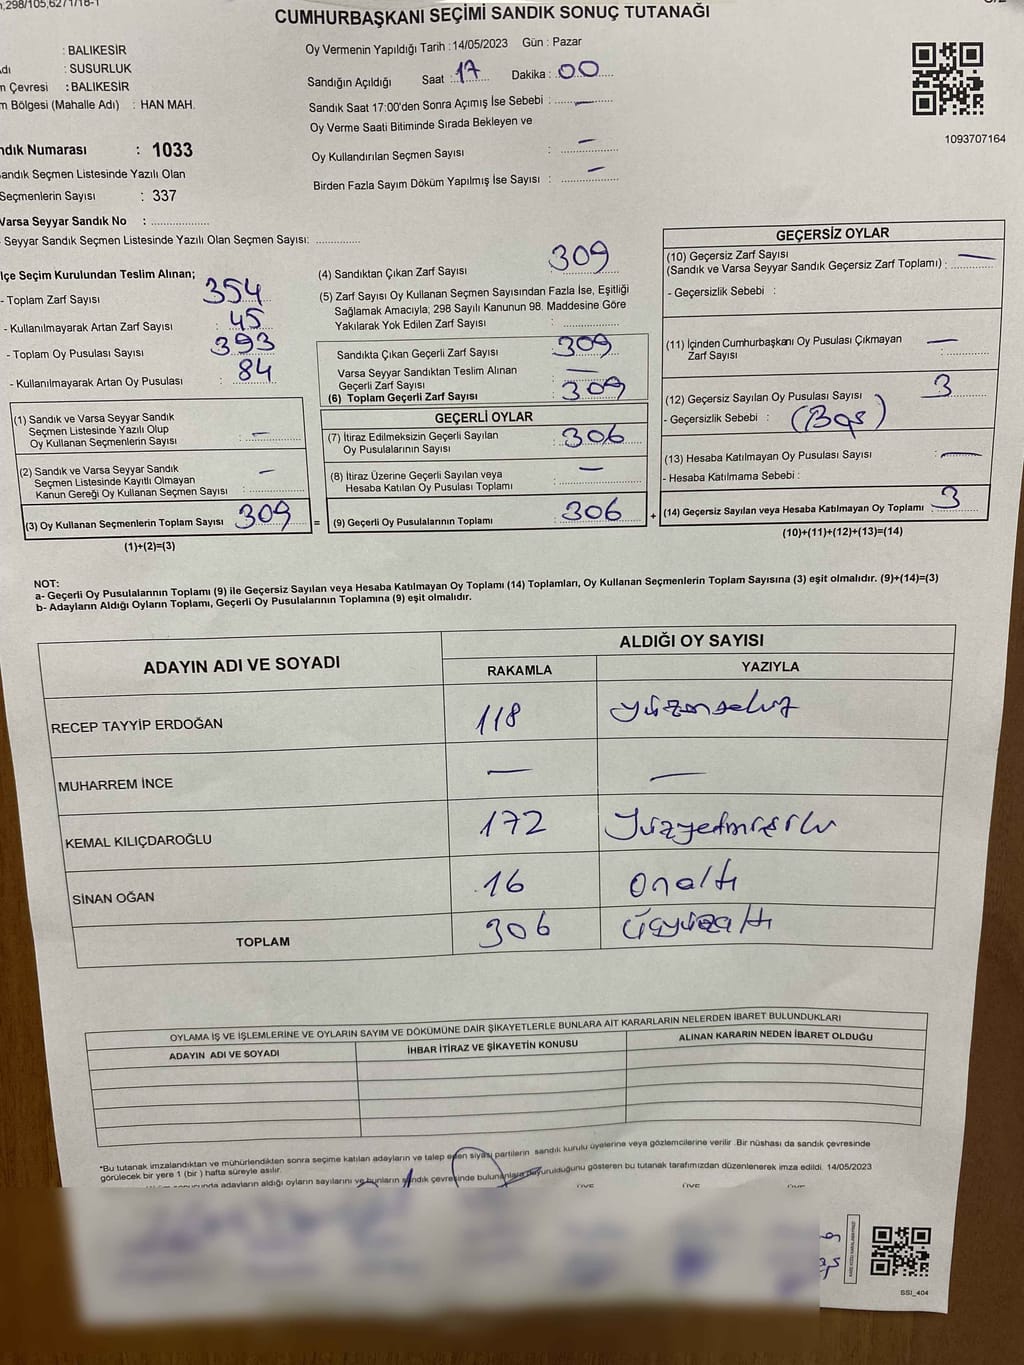 CUMHURBAŞKANI SEÇİMİ SANDIK SONUÇ TUTANAĞI
: BALIKESİR
: SUSURLUK
: BALIKESİR
Bölgesi (Mahalle Adı) : HAN MAH.
Numarası : 1033
Sandık Seçmen Listesinde Yazılı Olan
Seçmenlerin Sayısı : 337
Varsa Seyyar Sandık No : ....................
Seyyar Sandık Seçmen Listesinde Yazılı Olan Seçmen Sayısı: ...............
Oy Vermenin Yapıldığı Tarih : 14/05/2023 Gün : Pazar
Sandığın Açıldığı Saat : 17 Dakika : 00
Sandık Saat 17:00'den Sonra Açımış İse Sebebi : —
Oy Verme Saati Bitiminde Sırada Bekleyen ve
Oy Kullandırılan Seçmen Sayısı : —
Birden Fazla Sayım Döküm Yapılmış İse Sayısı : —
1093707164
İlçe Seçim Kurulundan Teslim Alınan;
- Toplam Zarf Sayısı : 354
- Kullanılmayarak Artan Zarf Sayısı : 45
- Toplam Oy Pusulası Sayısı : 393
- Kullanılmayarak Artan Oy Pusulası : 84
(1) Sandık ve Varsa Seyyar Sandık
Seçmen Listesinde Yazılı Olup
Oy Kullanan Seçmenlerin Sayısı : —
(2) Sandık ve Varsa Seyyar Sandık
Seçmen Listesinde Kayıtlı Olmayan
Kanun Gereği Oy Kullanan Seçmen Sayısı : —
(3) Oy Kullanan Seçmenlerin Toplam Sayısı 309
(1)+(2)=(3)
(4) Sandıktan Çıkan Zarf Sayısı : 309
(5) Zarf Sayısı Oy Kullanan Seçmen Sayısından Fazla İse, Eşitliği
Sağlamak Amacıyla; 298 Sayılı Kanunun 98. Maddesine Göre
Yakılarak Yok Edilen Zarf Sayısı : ...............
Sandıkta Çıkan Geçerli Zarf Sayısı : 309
Varsa Seyyar Sandıktan Teslim Alınan
Geçerli Zarf Sayısı : —
(6) Toplam Geçerli Zarf Sayısı : 309
GEÇERLİ OYLAR
(7) İtiraz Edilmeksizin Geçerli Sayılan
Oy Pusulalarının Sayısı : 306
(8) İtiraz Üzerine Geçerli Sayılan veya
Hesaba Katılan Oy Pusulası Toplamı : —
= (9) Geçerli Oy Pusulalarının Toplamı : 306 +
GEÇERSİZ OYLAR
(10) Geçersiz Zarf Sayısı
(Sandık ve Varsa Seyyar Sandık Geçersiz Zarf Toplamı) : —
- Geçersizlik Sebebi :
(11) İçinden Cumhurbaşkanı Oy Pusulası Çıkmayan
Zarf Sayısı : —
(12) Geçersiz Sayılan Oy Pusulası Sayısı : 3
- Geçersizlik Sebebi : (Boş)
(13) Hesaba Katılmayan Oy Pusulası Sayısı : —
- Hesaba Katılmama Sebebi :
(14) Geçersiz Sayılan veya Hesaba Katılmayan Oy Toplamı : 3
(10)+(11)+(12)+(13)=(14)
NOT:
a- Geçerli Oy Pusulalarının Toplamı (9) ile Geçersiz Sayılan veya Hesaba Katılmayan Oy Toplamı (14) Toplamları, Oy Kullanan Seçmenlerin Toplam Sayısına (3) eşit olmalıdır. (9)+(14)=(3)
b- Adayların Aldığı Oyların Toplamı, Geçerli Oy Pusulalarının Toplamına (9) eşit olmalıdır.
ADAYIN ADI VE SOYADI ALDIĞI OY SAYISI
RAKAMLA YAZIYLA
RECEP TAYYİP ERDOĞAN 118 yüzonsekiz
MUHARREM İNCE — —
KEMAL KILIÇDAROĞLU 172 Yüzyetmişiki
SİNAN OĞAN 16 Onaltı
TOPLAM 306 Üçyüzaltı
OYLAMA İŞ VE İŞLEMLERİNE VE OYLARIN SAYIM VE DÖKÜMÜNE DAİR ŞİKAYETLERLE BUNLARA AİT KARARLARIN NELERDEN İBARET BULUNDUKLARI
ADAYIN ADI VE SOYADI İHBAR İTİRAZ VE ŞİKAYETİN KONUSU ALINAN KARARIN NEDEN İBARET OLDUĞU
*Bu tutanak imzalandıktan ve mühürlendikten sonra seçime katılan adayların ve talep eden siyasi partilerin sandık kurulu üyelerine veya gözlemcilerine verilir. Bir nüshası da sandık çevresinde
görülecek bir yere 1 (bir ) hafta süreyle asılır.
adayların aldığı oyların sayılarını ve bunların sandık çevresinde bulunanlara duyurulduğunu gösteren bu tutanak tarafımızdan düzenlenerek imza edildi. 14/05/2023
SSI_404